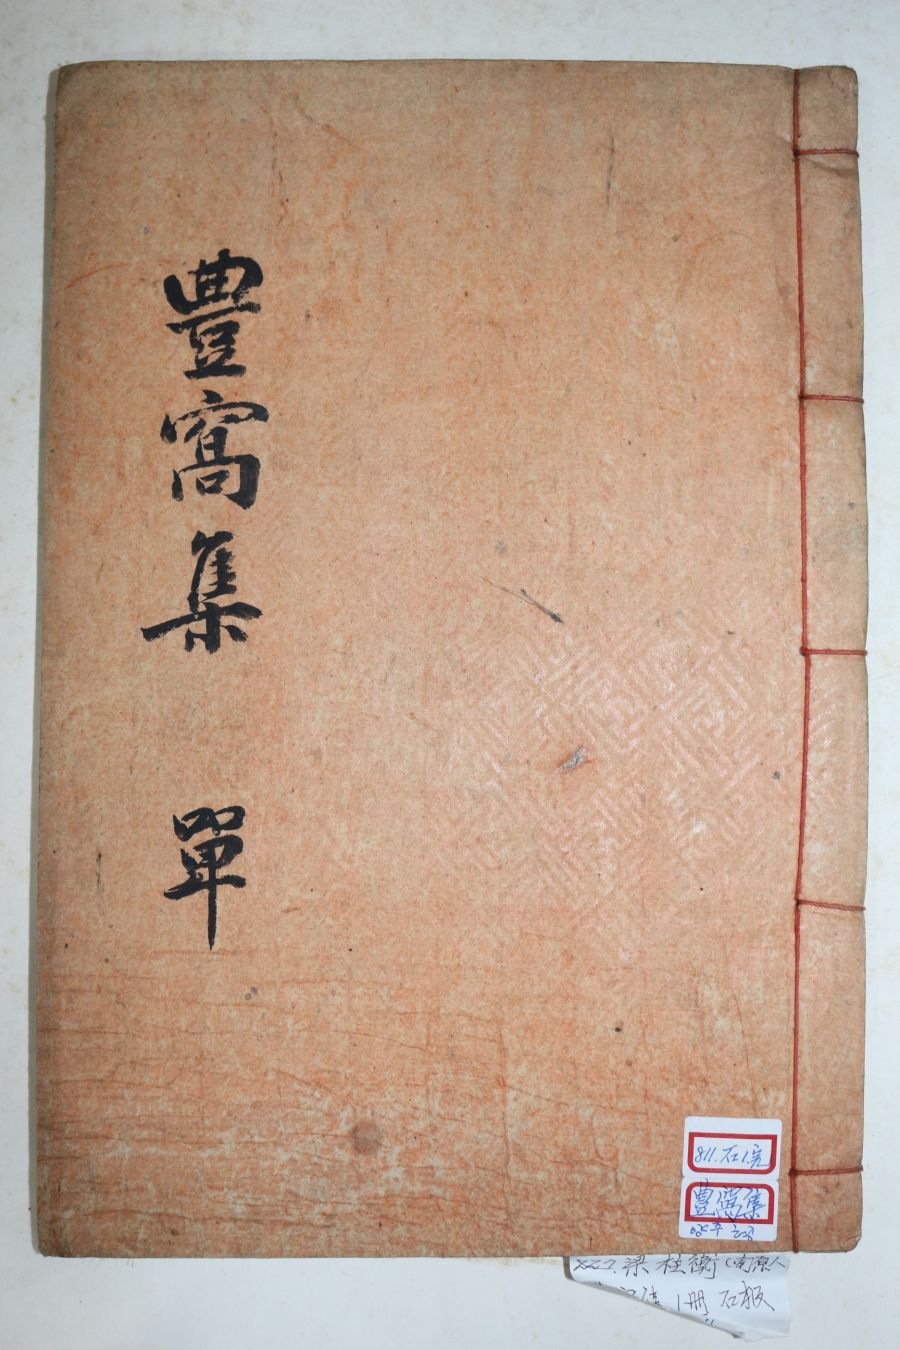 豊窩集 單
811.石1.完
豊窩集
梁柱衡(南原人
1冊 石板